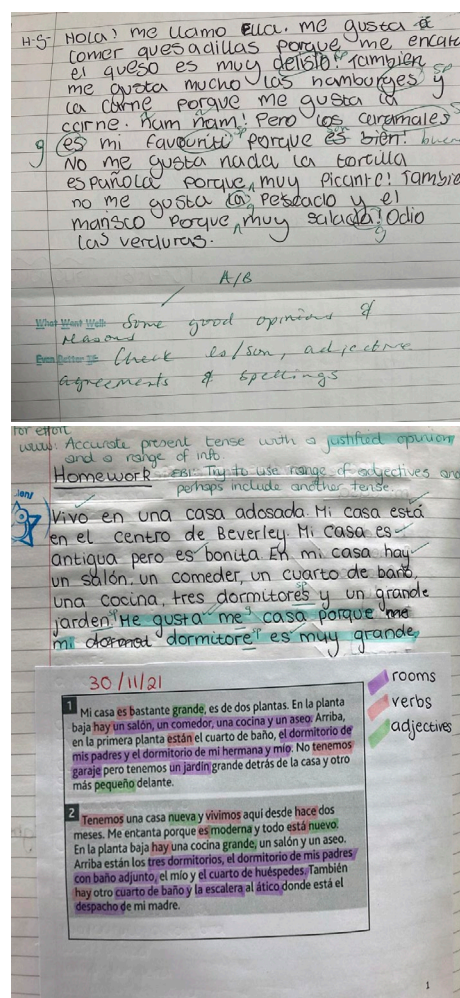 H.S- Hola! me llamo Ella. me gusta
comer quesadillas porque me encata
el queso es muy delisio! Tambien
me gusta mucho las hamburges y
la carne porque me gusta la
carne. ñam ñam! Pero los caramales
g es mi favouriti porque es bien!
No me gusta nada la tortilla
española porque muy picante! Tambie
no me gusta la pescado y el
marisco porque muy salada! Odio
las verduras.
A/B
What Went Well Some good opinions &
reasons
Even Better If Check es/son, adjective
agreements & spellings
for effort
www: Accurate present tense with a justified opinion
and a range of info
Homework EBI: Try to use range of adjectives and
perhaps include another tense.
Vivo en una casa adosada. Mi casa está
en el centro de Beverley. Mi casa es
antigua pero es bonita. En mi casa hay
un salón, un comeder, un cuarto de baño,
una cocina, tres dormitores y un grande
jarden. Me gusta me casa porque me
mi dormitore es muy grande,
30/11/21
rooms
verbs
adjectives
1 Mi casa es bastante grande, es de dos plantas. En la planta
baja hay un salón, un comedor, una cocina y un aseo. Arriba,
en la primera planta están el cuarto de baño, el dormitorio de
mis padres y el dormitorio de mi hermana y mío. No tenemos
garaje pero tenemos un jardín grande detrás de la casa y otro
más pequeño delante.
2 Tenemos una casa nueva y vivimos aquí desde hace dos
meses. Me encanta porque es moderna y todo está nuevo.
En la planta baja hay una cocina grande, un salón y un aseo.
Arriba están los tres dormitorios, el dormitorio de mis padres
con baño adjunto, el mío y el cuarto de huéspedes. También
hay otro cuarto de baño y la escalera al ático donde está el
despacho de mi madre.
1